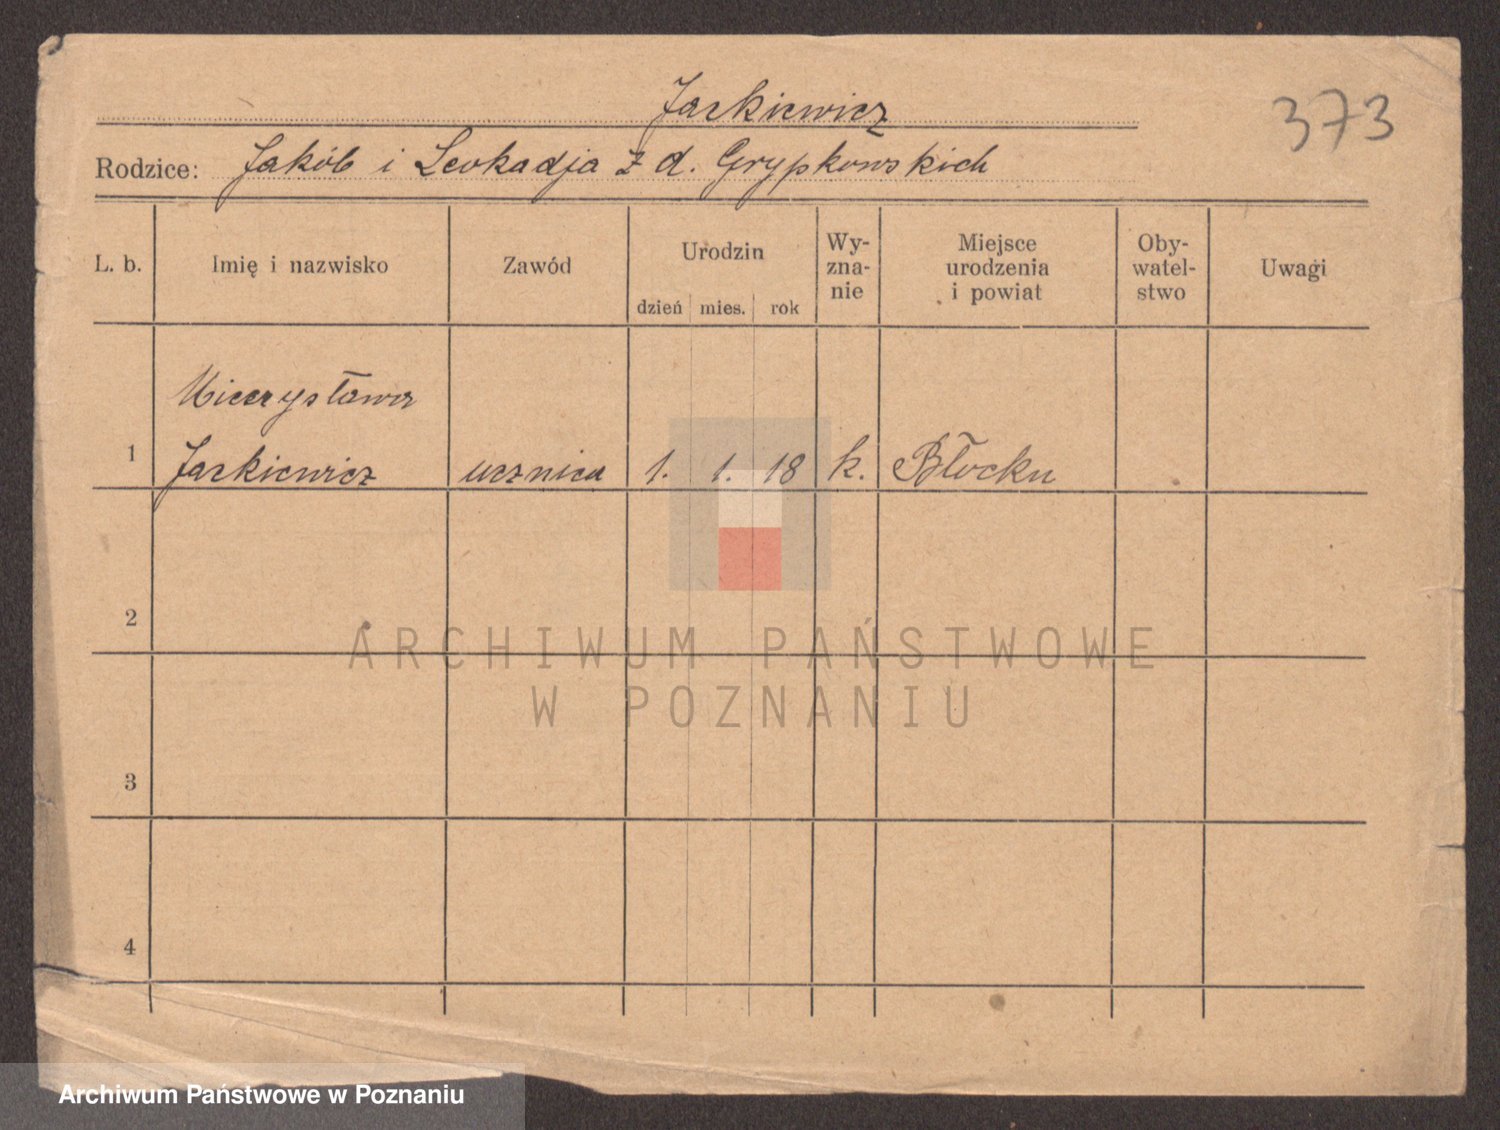 Jarkiewicz
373
Rodzice: Jakób i Leokadja z d. Grypkowskich
L. b. Imię i nazwisko Zawód Urodzin dzień mies. rok Wy-zna-nie Miejsce urodzenia i powiat Oby-watel-stwo Uwagi
Mieczysława
1 Jarkiewicz ucznica 1. 1. 18 k. Błocku
2
3
4
ARCHIWUM PAŃSTWOWE
W POZNANIU
Archiwum Państwowe w Poznaniu